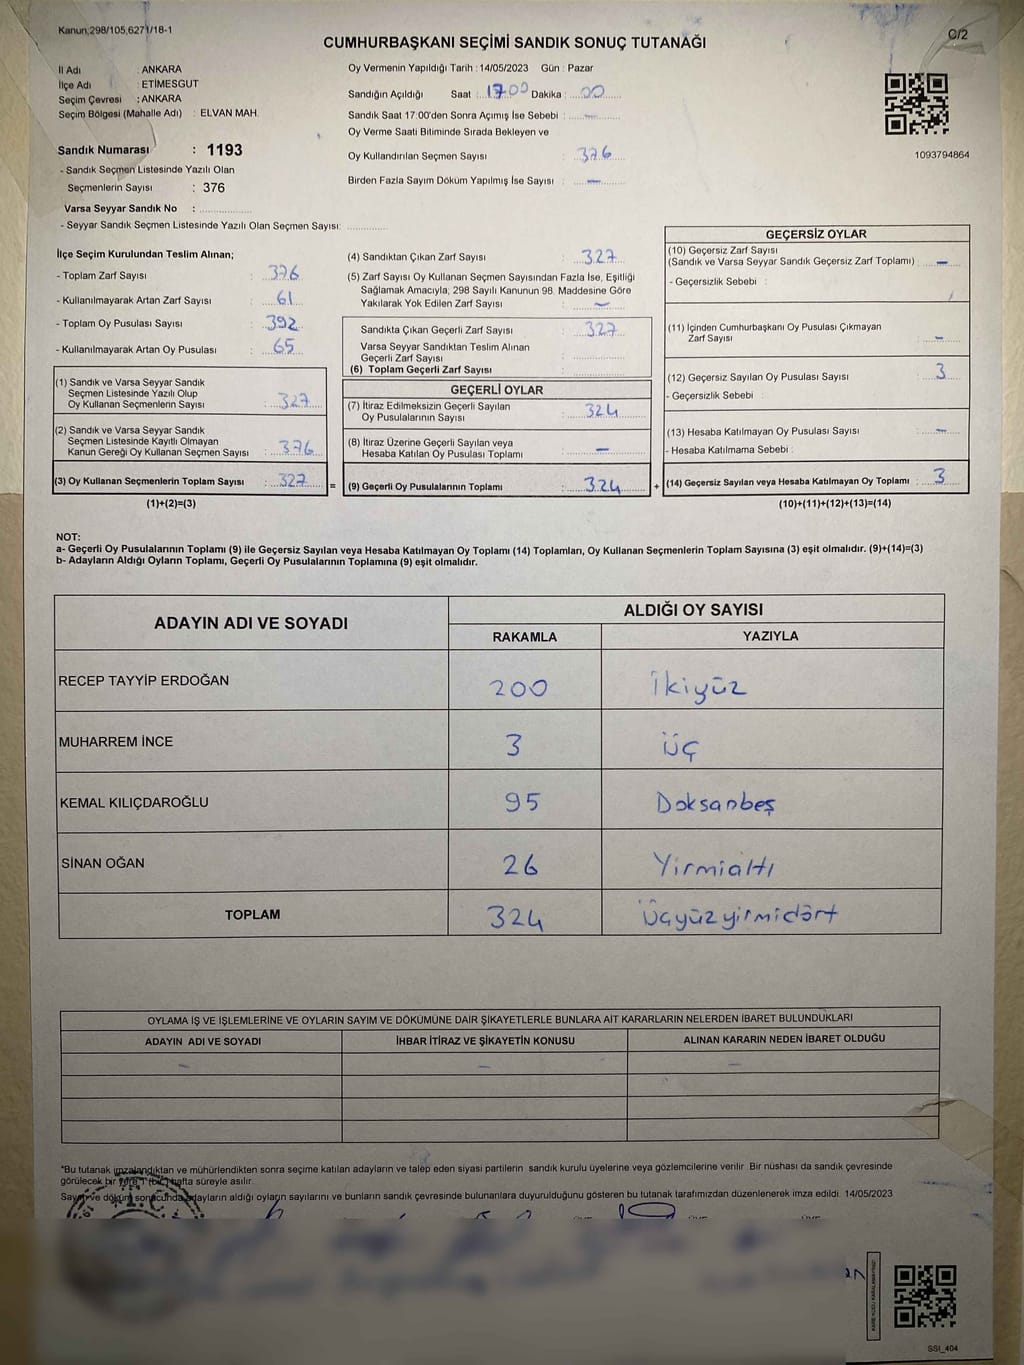 Kanun;298/105,6271/18-1
C/2
CUMHURBAŞKANI SEÇİMİ SANDIK SONUÇ TUTANAĞI
İl Adı : ANKARA
İlçe Adı : ETİMESGUT
Seçim Çevresi : ANKARA
Seçim Bölgesi (Mahalle Adı) : ELVAN MAH.
Sandık Numarası : 1193
- Sandık Seçmen Listesinde Yazılı Olan
Seçmenlerin Sayısı : 376
Varsa Seyyar Sandık No :
- Seyyar Sandık Seçmen Listesinde Yazılı Olan Seçmen Sayısı:
Oy Vermenin Yapıldığı Tarih : 14/05/2023 Gün : Pazar
Sandığın Açıldığı Saat : 17:00 Dakika : 00
Sandık Saat 17:00'den Sonra Açımış İse Sebebi : —
Oy Verme Saati Bitiminde Sırada Bekleyen ve
Oy Kullandırılan Seçmen Sayısı : 376
Birden Fazla Sayım Döküm Yapılmış İse Sayısı : —
1093794864
İlçe Seçim Kurulundan Teslim Alınan;
- Toplam Zarf Sayısı : 376
- Kullanılmayarak Artan Zarf Sayısı : 61
- Toplam Oy Pusulası Sayısı : 392
- Kullanılmayarak Artan Oy Pusulası : 65
(1) Sandık ve Varsa Seyyar Sandık
Seçmen Listesinde Yazılı Olup
Oy Kullanan Seçmenlerin Sayısı : 327
(2) Sandık ve Varsa Seyyar Sandık
Seçmen Listesinde Kayıtlı Olmayan
Kanun Gereği Oy Kullanan Seçmen Sayısı : 376
(3) Oy Kullanan Seçmenlerin Toplam Sayısı : 327 =
(1)+(2)=(3)
(4) Sandıktan Çıkan Zarf Sayısı : 327
(5) Zarf Sayısı Oy Kullanan Seçmen Sayısından Fazla İse, Eşitliği
Sağlamak Amacıyla, 298 Sayılı Kanunun 98. Maddesine Göre
Yakılarak Yok Edilen Zarf Sayısı : —
Sandıkta Çıkan Geçerli Zarf Sayısı : 327
Varsa Seyyar Sandıktan Teslim Alınan
Geçerli Zarf Sayısı :
(6) Toplam Geçerli Zarf Sayısı :
GEÇERLİ OYLAR
(7) İtiraz Edilmeksizin Geçerli Sayılan
Oy Pusulalarının Sayısı : 324
(8) İtiraz Üzerine Geçerli Sayılan veya
Hesaba Katılan Oy Pusulası Toplamı : —
(9) Geçerli Oy Pusulalarının Toplamı : 324 +
GEÇERSİZ OYLAR
(10) Geçersiz Zarf Sayısı
(Sandık ve Varsa Seyyar Sandık Geçersiz Zarf Toplamı) : —
- Geçersizlik Sebebi :
(11) İçinden Cumhurbaşkanı Oy Pusulası Çıkmayan
Zarf Sayısı : —
(12) Geçersiz Sayılan Oy Pusulası Sayısı : 3
- Geçersizlik Sebebi :
(13) Hesaba Katılmayan Oy Pusulası Sayısı : —
- Hesaba Katılmama Sebebi :
(14) Geçersiz Sayılan veya Hesaba Katılmayan Oy Toplamı : 3
(10)+(11)+(12)+(13)=(14)
NOT:
a- Geçerli Oy Pusulalarının Toplamı (9) ile Geçersiz Sayılan veya Hesaba Katılmayan Oy Toplamı (14) Toplamları, Oy Kullanan Seçmenlerin Toplam Sayısına (3) eşit olmalıdır. (9)+(14)=(3)
b- Adayların Aldığı Oyların Toplamı, Geçerli Oy Pusulalarının Toplamına (9) eşit olmalıdır.
ADAYIN ADI VE SOYADI ALDIĞI OY SAYISI
RAKAMLA YAZIYLA
RECEP TAYYİP ERDOĞAN 200 İkiyüz
MUHARREM İNCE 3 Üç
KEMAL KILIÇDAROĞLU 95 Doksanbeş
SİNAN OĞAN 26 Yirmialtı
TOPLAM 324 Üçyüzyirmidört
OYLAMA İŞ VE İŞLEMLERİNE VE OYLARIN SAYIM VE DÖKÜMÜNE DAİR ŞİKAYETLERLE BUNLARA AİT KARARLARIN NELERDEN İBARET BULUNDUKLARI
ADAYIN ADI VE SOYADI İHBAR İTİRAZ VE ŞİKAYETİN KONUSU ALINAN KARARIN NEDEN İBARET OLDUĞU
— — —
*Bu tutanak imzalandıktan ve mühürlendikten sonra seçime katılan adayların ve talep eden siyasi partilerin sandık kurulu üyelerine veya gözlemcilerine verilir. Bir nüshası da sandık çevresinde
görülecek bir yere 1 (bir) hafta süreyle asılır.
Sayım ve döküm sonucunda adayların aldığı oyların sayılarını ve bunların sandık çevresinde bulunanlara duyurulduğunu gösteren bu tutanak tarafımızdan düzenlenerek imza edildi. 14/05/2023
T.C
KARE KODU KARALAMAYINIZ!
SSI_404